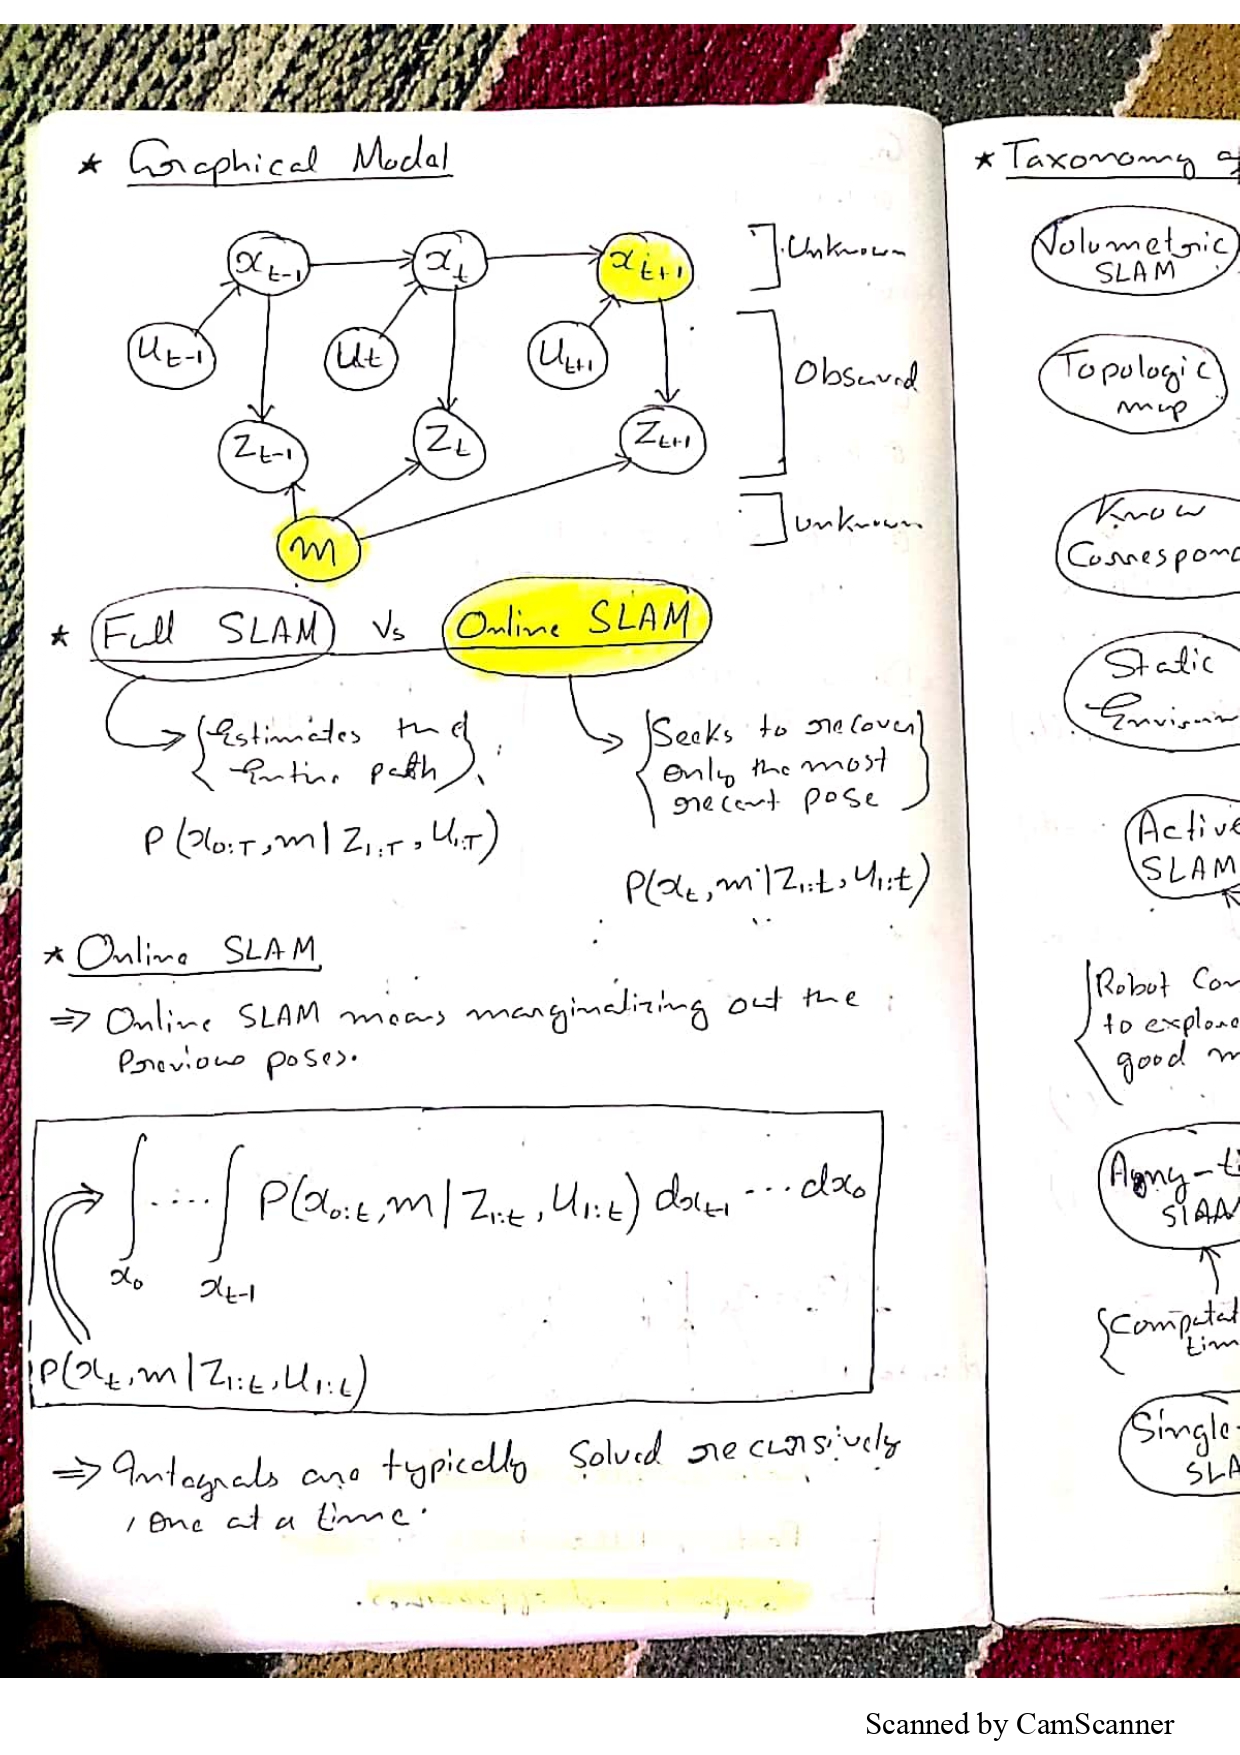 * Graphical Modal
x_{t-1} x_t x_{t+1} ] Unknown
u_{t-1} u_t u_{t+1}
] Observed
z_{t-1} z_t z_{t+1}
m ] Unknown
* Full SLAM Vs Online SLAM
{ Estimates the }
Entire path
P(x_{0:T}, m | z_{1:T}, u_{1:T})
{ Seeks to recover }
only the most
recent pose
P(x_t, m | z_{1:t}, u_{1:t})
* Online SLAM
⇒ Online SLAM means marginalizing out the
Previous poses.
∫_{x_0} ..... ∫_{x_{t-1}} P(x_{0:t}, m | z_{1:t}, u_{1:t}) dx_{t-1} ... dx_0
P(x_t, m | z_{1:t}, u_{1:t})
⇒ Integrals are typically Solved recursively
, One at a time.
* Taxonomy of
Volumetric
SLAM
Topologic
map
Know
Correspond
Static
Environ
Active
SLAM
{ Robot Con
to explore
good m
SLAM
{ Computat
tim
Single-
SLA
Scanned by CamScanner